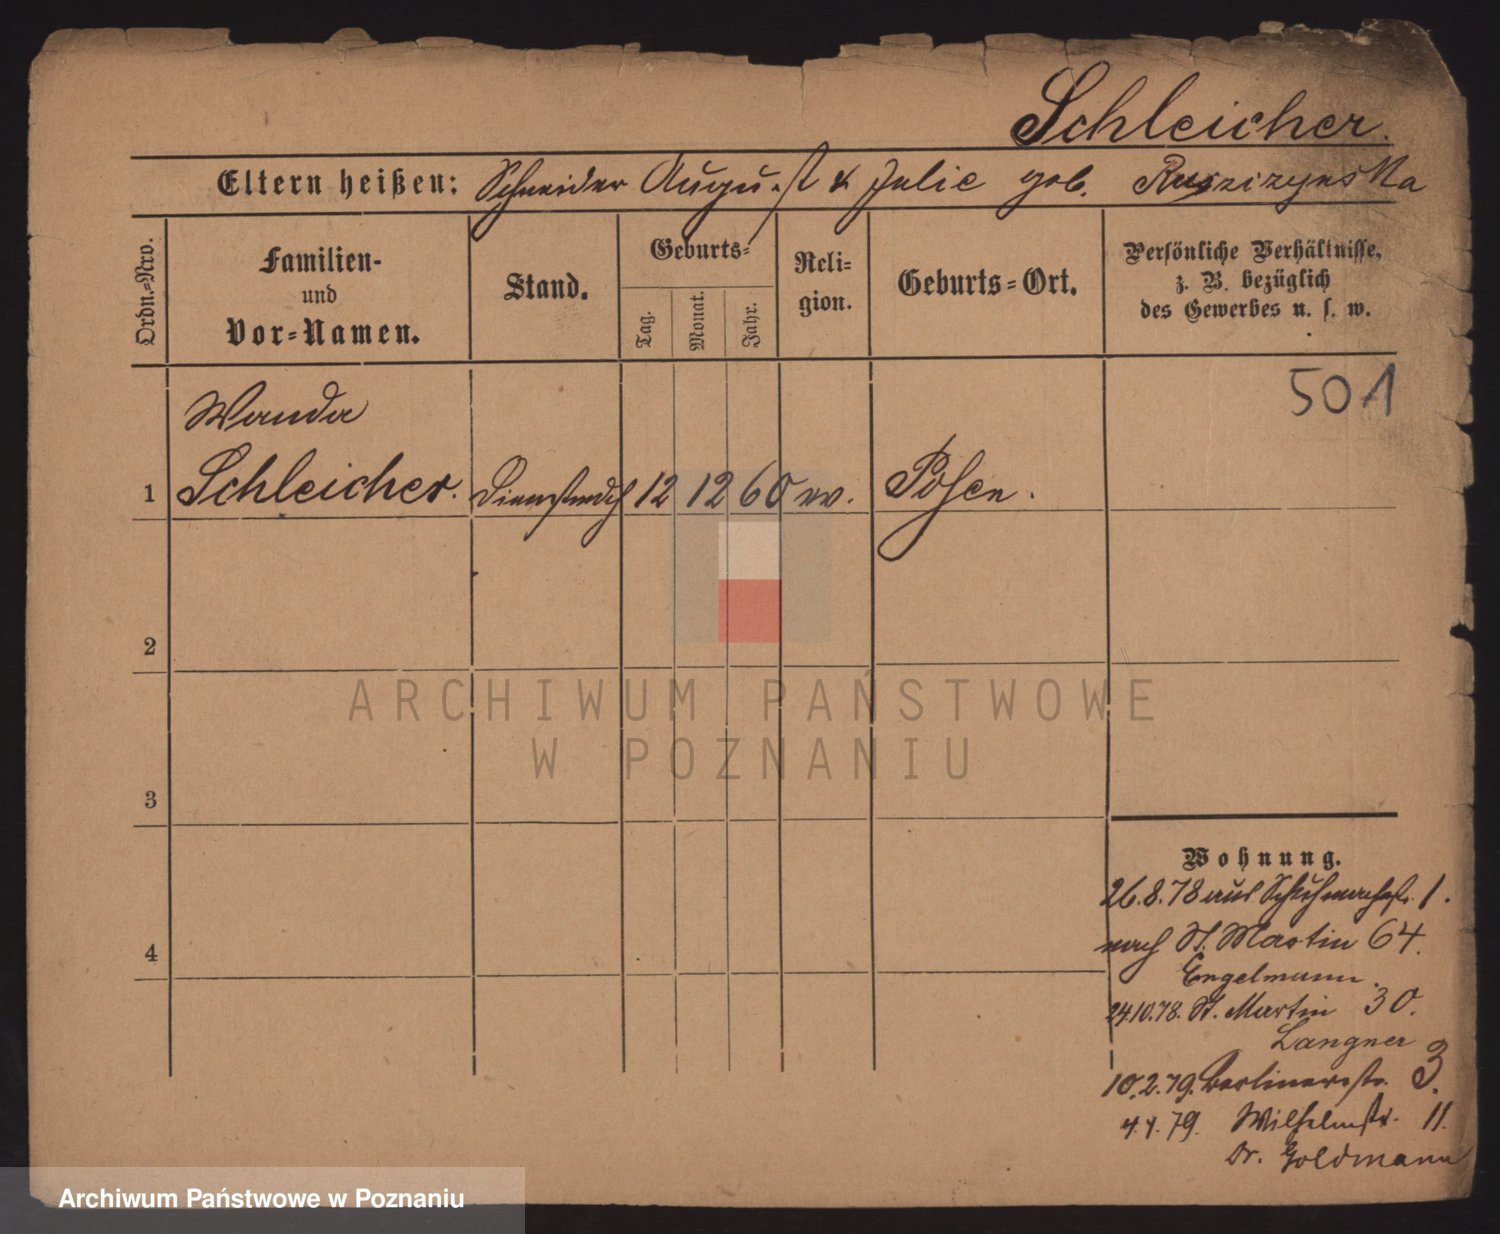 Schleicher.
Eltern heißen: Schneider August & Julie geb. Ruszizynska
Ordn.=Nro.
Familien-
und
Vor=Namen.
Stand.
Geburts=
Tag.
Monat.
Jahr.
Reli=
gion.
Geburts=Ort.
Persönliche Verhältnisse,
z. B. bezüglich
des Gewerbes u. s. w.
501
Wanda
1 Schleicher. Dienstmdch 12 12 60 ev. Posen.
2
ARCHIWUM PAŃSTWOWE
W POZNANIU
3
4
Wohnung.
26.8.78 aus Schuhmacherstr. 1.
nach St. Martin 64.
Engelmann.
24.10.78. St. Martin 30.
Langner
10.2.79. Berlinerstr. 3.
4.4.79. Wilhelmstr. 11.
Dr. Goldmann
Archiwum Państwowe w Poznaniu